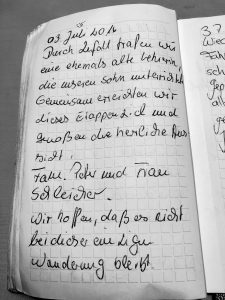 03 Juli 2016
Durch Zufall trafen wir
eine ehemals alte Lehrerin,
die unseren Sohn unterrichtete
Gemeinsam erreichten wir
dieses Etappenziel und
genoßen die herrliche Aus-
sicht.
Fam. Peter und Frau
Schleicher.
Wir hoffen, daß es nicht
bei dieser einzigen
Wanderung bleibt.
3.7